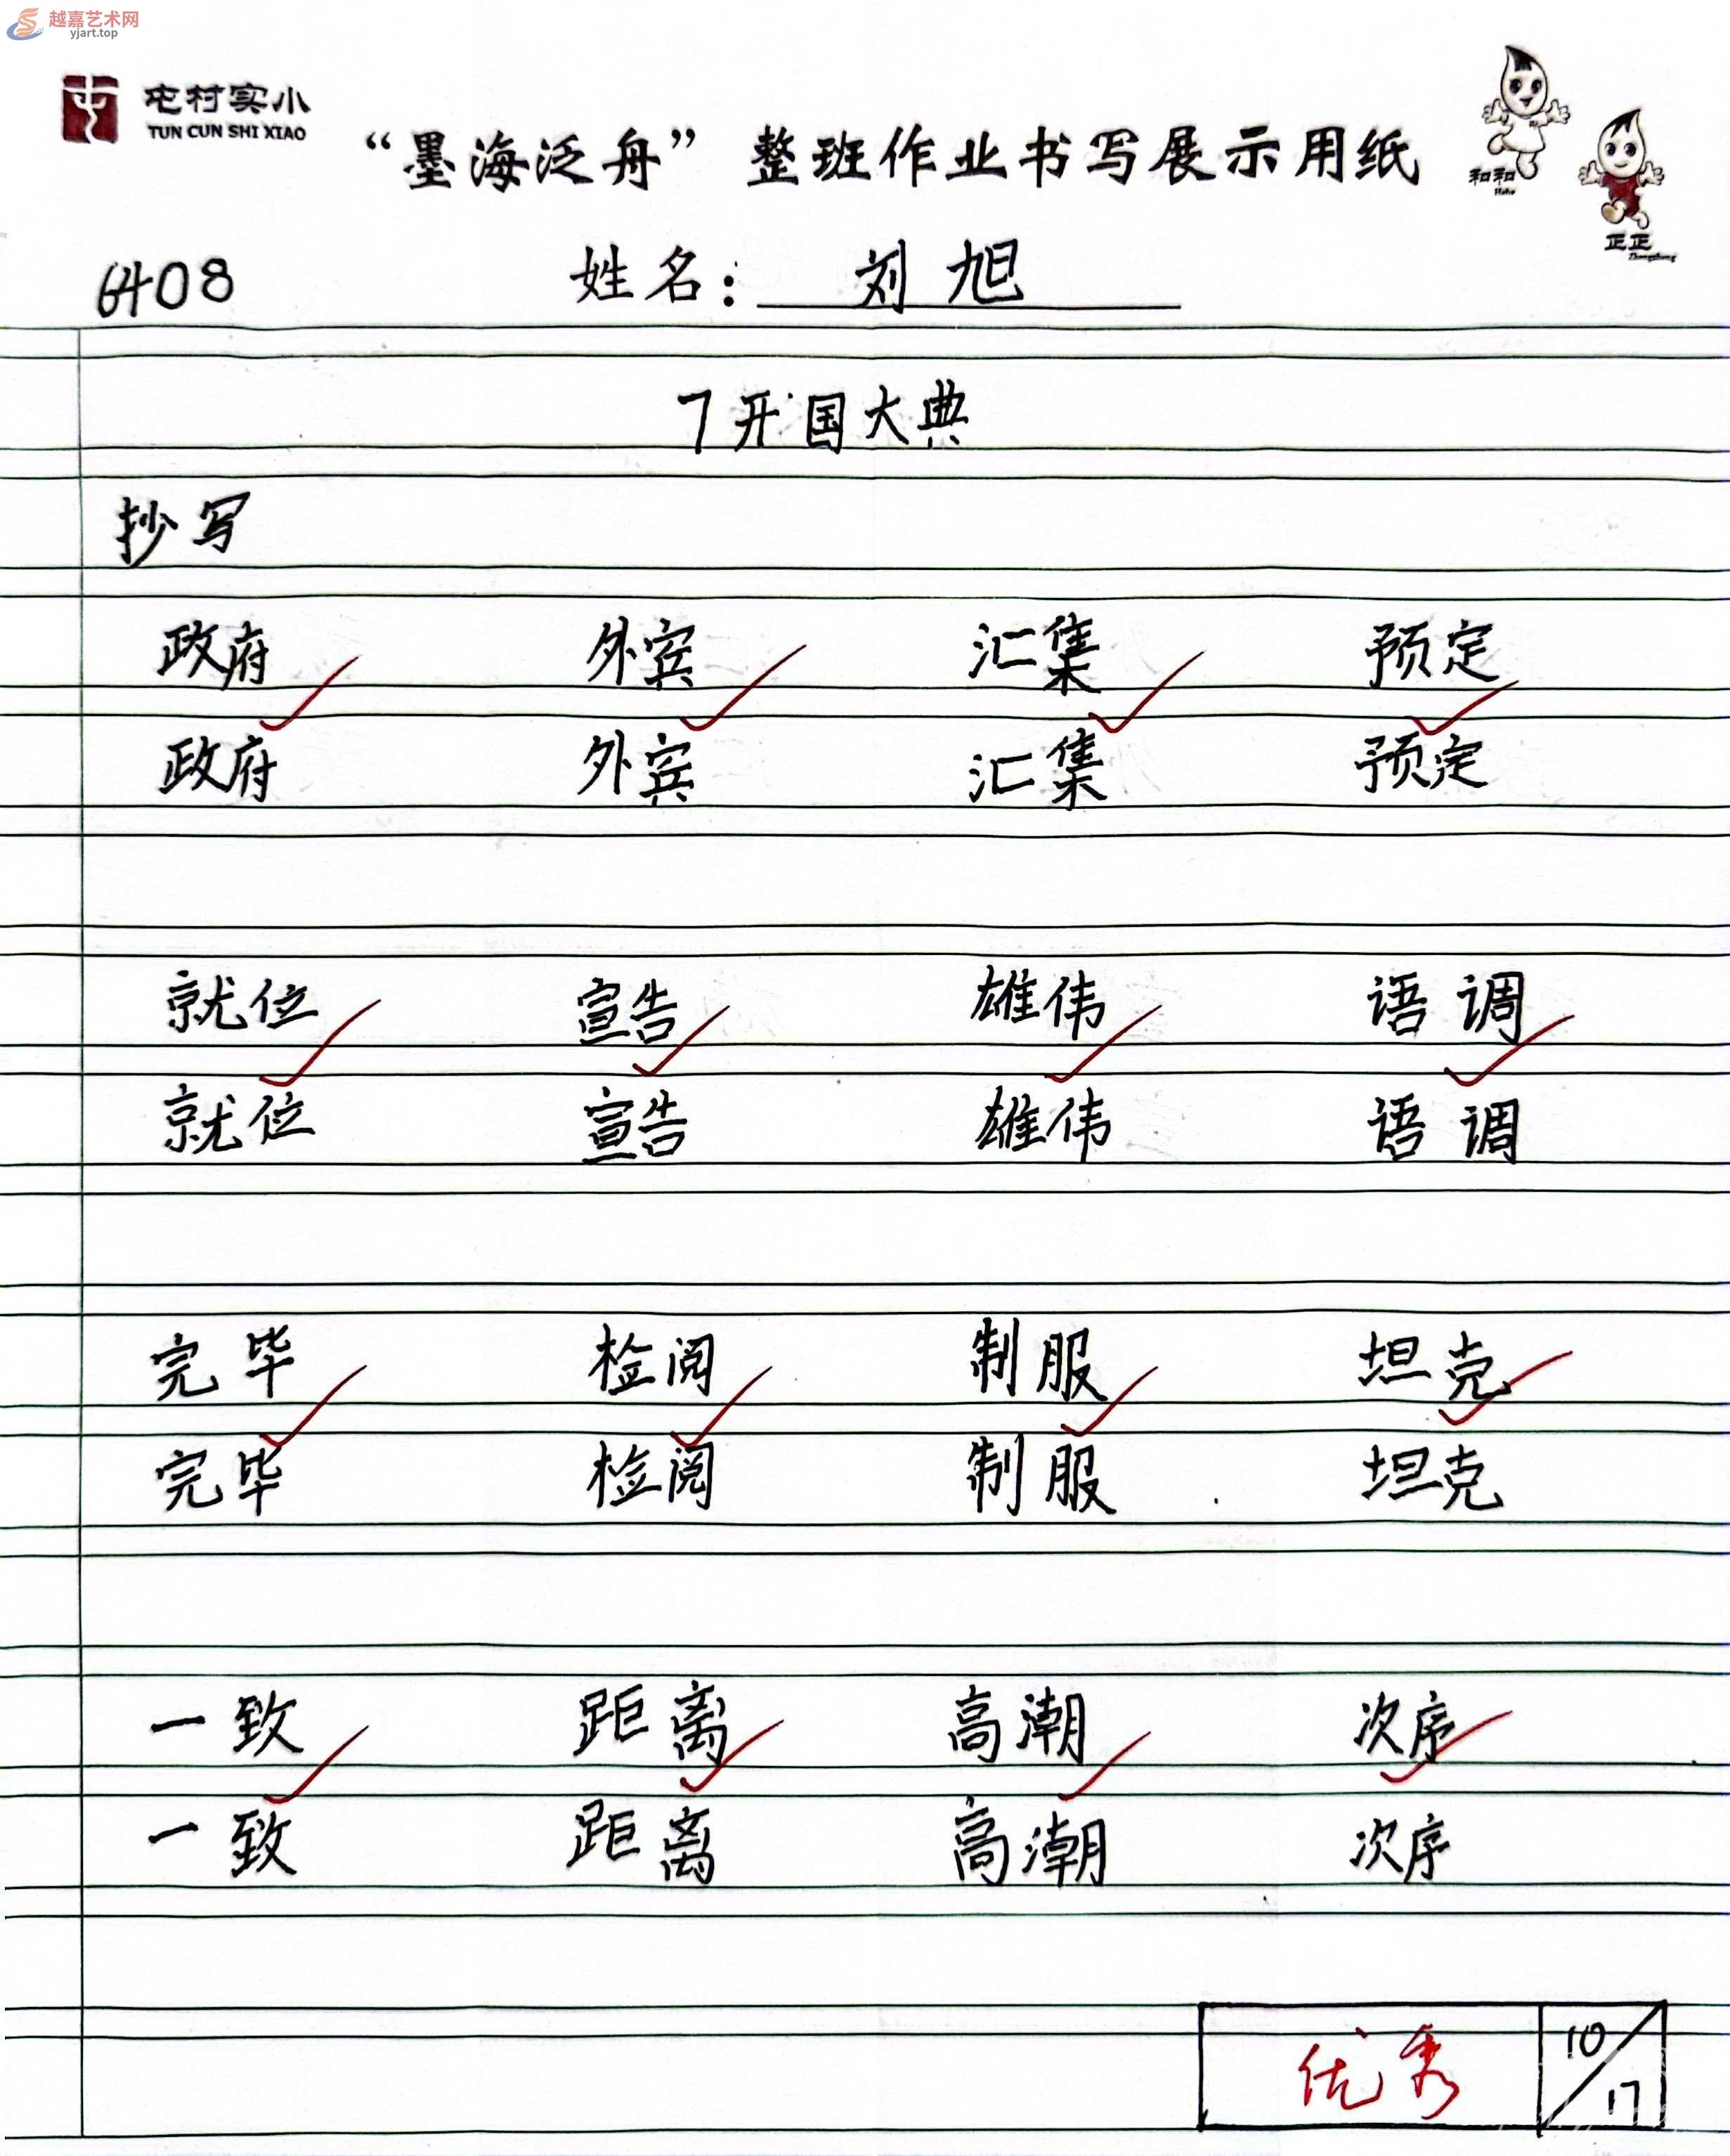 越嘉艺术网
yjart.top
屯村实小
TUN CUN SHI XIAO
“墨海泛舟”整班作业书写展示用纸
和和
Hehe
正正
Zhengzheng
6408 姓名：刘旭
7 开国大典
抄写
政府 外宾 汇集 预定
政府 外宾 汇集 预定
就位 宣告 雄伟 语调
就位 宣告 雄伟 语调
完毕 检阅 制服 坦克
完毕 检阅 制服 坦克
一致 距离 高潮 次序
一致 距离 高潮 次序
优秀 10/17